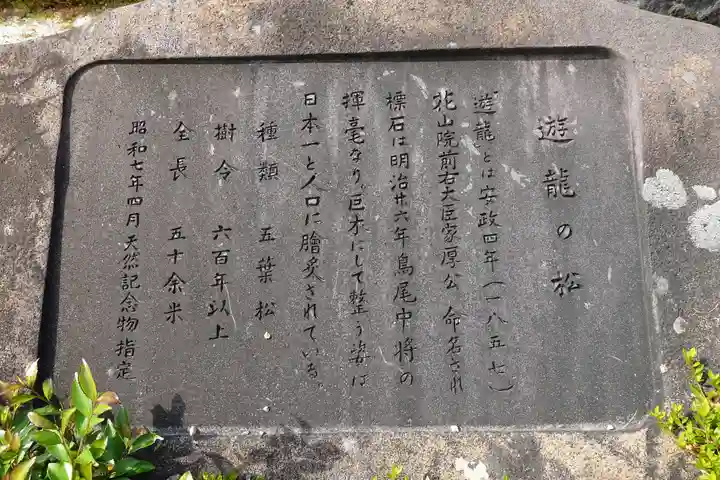 遊龍の松
遊龍とは安政四年(一八五七)
花山院前右大臣家厚公 命名され
標石は明治廿六年鳥尾中将の
揮毫なり。巨木にして整う姿は
日本一と人口に膾炙されている。
種類 五葉松
樹令 六百年以上
全長 五十余米
昭和七年四月天然記念物指定